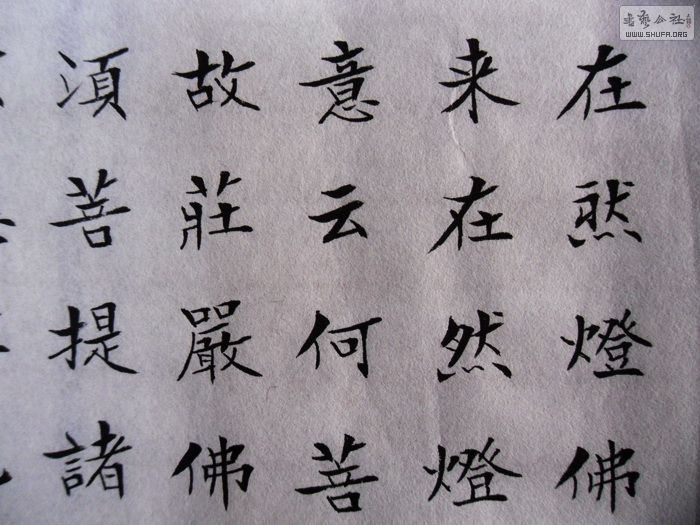 在然燈佛
来在然燈
意云何菩
故莊嚴佛
湏菩提諸
書藝公社
WWW.SHUFA.ORG